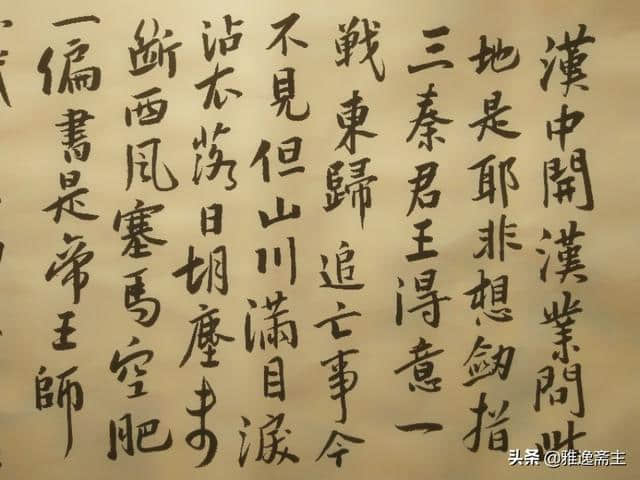 漢中開漢業問此
地是耶非想劔指
三秦君王得意一
戦東歸 追亡事今
不見但山川滿目淚
沾衣落日胡塵未
斷西風塞馬空肥
一偏書是帝王師
头条 @雅逸斋主